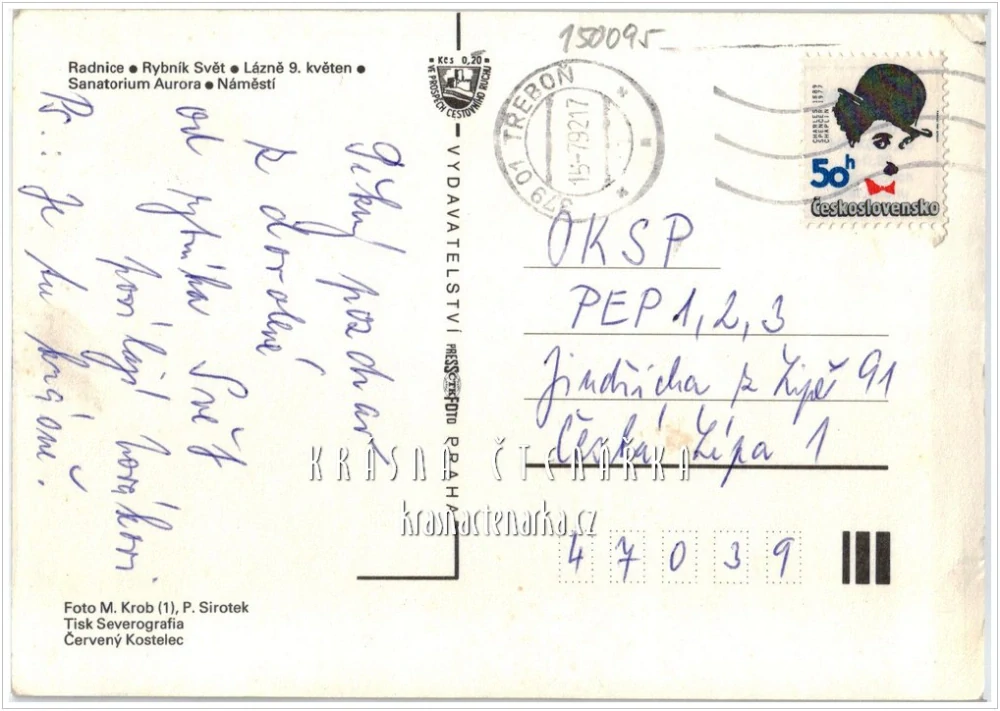 150095
Radnice • Rybník Svět • Lázně 9. květen •
Sanatorium Aurora • Náměstí
Kčs 0,20
VE PROSPĚCH CESTOVNÍHO RUCHU
VYDAVATELSTVÍ PRESSFOTO PRAHA
ČTK
379 01 TŘEBOŇ
15-7.92 17
CHARLES SPENCER CHAPLIN
1889 1977
50h
Československo
Pěkný pozdrav
z dovolené
od rybníka Svět
posílají Novákovi.
PS: Je tu krásně.
OKSP
PEP 1, 2, 3
Jindřicha z Lipé 91
Česká Lípa 1
47039
KRÁSNÁ ČTENÁŘKA
krasnactenarka.cz
Foto M. Krob (1), P. Sirotek
Tisk Severografia
Červený Kostelec